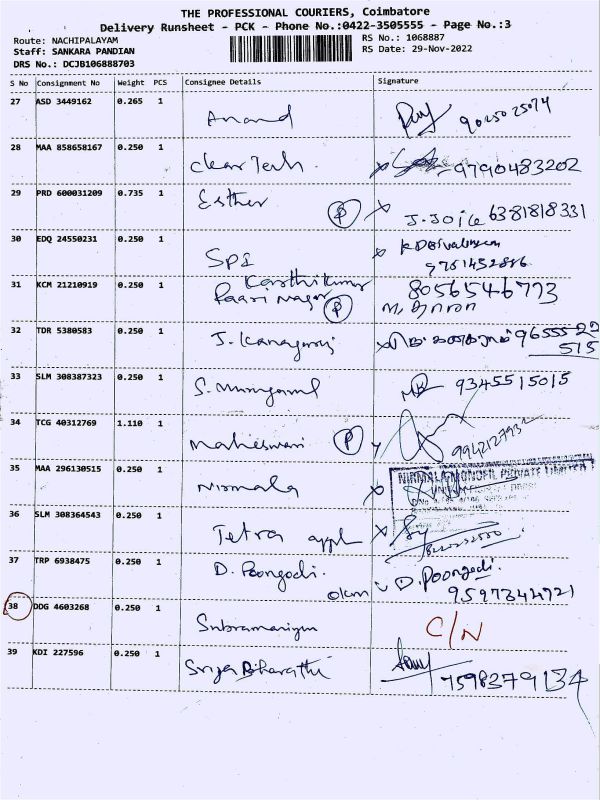 THE PROFESSIONAL COURIERS, Coimbatore
Delivery Runsheet - PCK - Phone No.:0422-3505555 - Page No.:3
Route: NACHIPALAYAM
RS No.: 1068887
Staff: SANKARA PANDIAN
RS Date: 29-Nov-2022
DRS No.: DCJB106888703
S No Consignment No Weight PCS Consignee Details Signature
27 ASD 3449162 0.265 1
Anand 9025025074
28 MAA 858658167 0.250 1
Clear Tech. x 9790483202
29 PRD 600031209 0.735 1
Esther P x J.Joice 6381818331
30 EDQ 24550231 0.250 1
SPI x
31 KCM 21210919 0.250 1
Karthikumar 8056546773
Paari Nagar P
32 TDR 5380583 0.250 1
J. Kanagaraj x 9655522
515
33 SLM 308387323 0.250 1
S. Murugavel 9345515015
34 TCG 40312769 1.110 1
Maheswari P
35 MAA 296130515 0.250 1
Nirmala x NIRMALA MONOFIL PRIVATE LIMITED
36 SLM 308364543 0.250 1
Tetra appl x
37 TRP 6938475 0.250 1
D. Poongodi. D. Poongodi.
okm 9597344921
38 DDG 4603268 0.250 1
Subramaniyam C/N
39 KDI 227596 0.250 1
Sriya Bharathi 7598379134